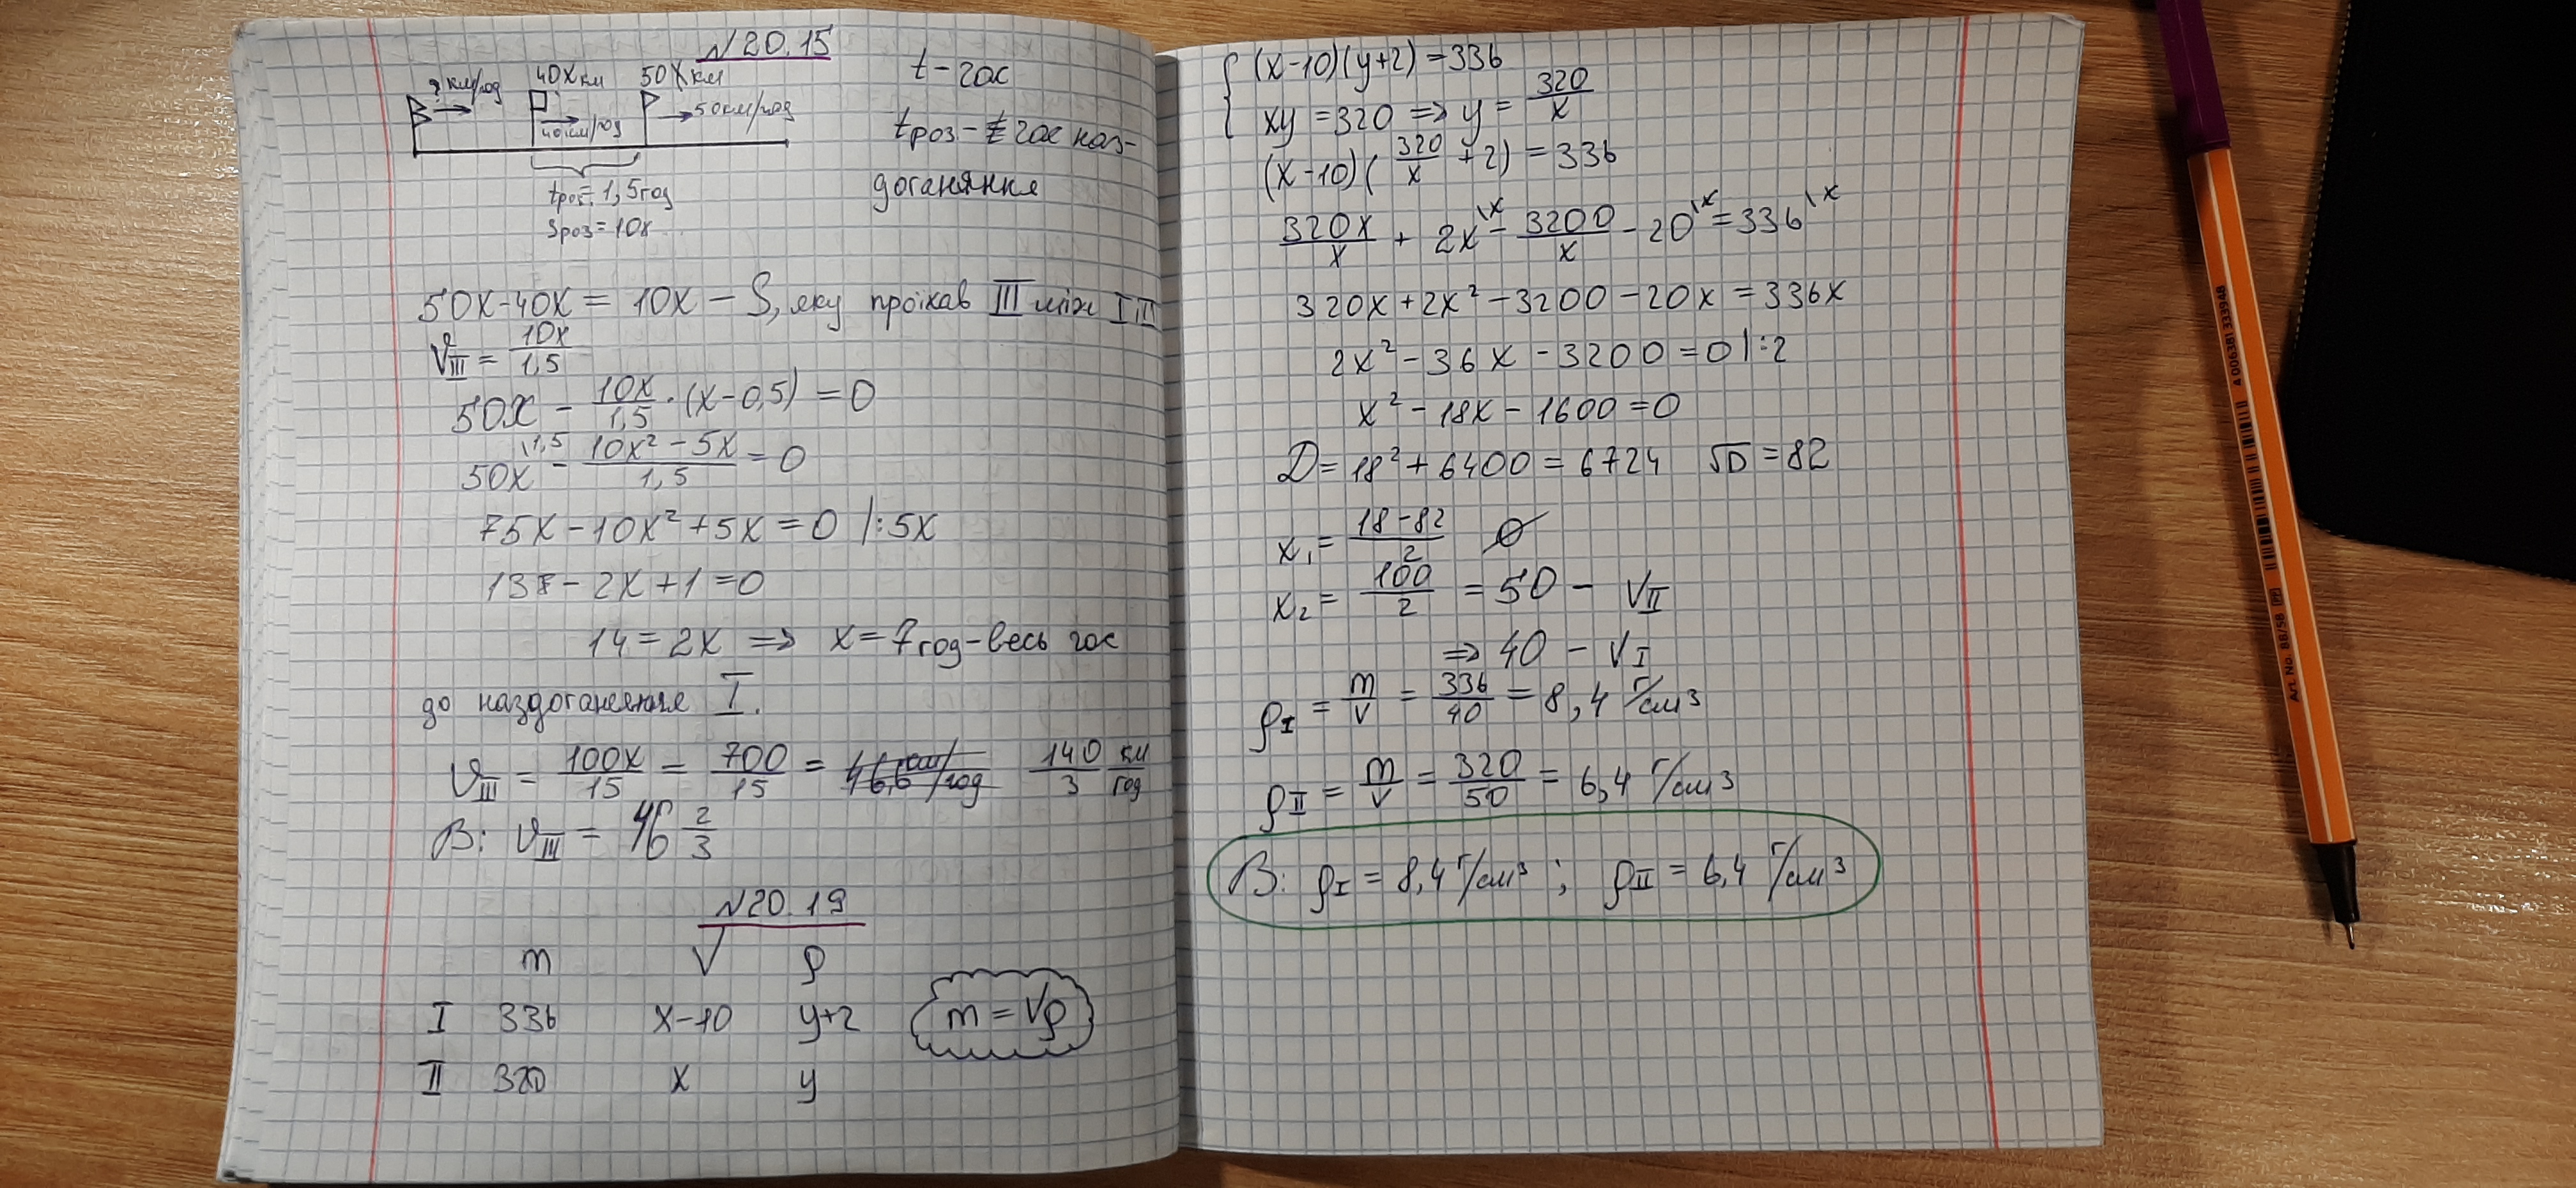 N20.15
? км/год 40X км 50X км
40 км/год 50 км/год
tроз = 1,5 год
Sроз = 10x
t – час
tроз – час наз-
доганяння
50X-40X = 10X – S, яку проїхав III між I і II
VIII = 10x/1,5
50X - 10x/1,5 · (x-0,5) = 0
50x\1,5 - (10x² - 5x)/1,5 = 0
75x - 10x² + 5x = 0 |:5x
13 - 2x + 1 = 0
14 = 2x ⇒ x = 7 год - весь час
до наздоганяння I.
VIII = 100x/15 = 700/15 = 140/3 км/год
В: VIII = 46 2/3
N20.19
m V ρ
I 336 x-10 y+2
II 320 x y
m = Vρ
{ (x-10)(y+2) = 336
xy = 320 ⇒ y = 320/x
(x-10)(320/x + 2) = 336
320x/x + 2x\x - 3200/x - 20\x = 336\x
320x + 2x² - 3200 - 20x = 336x
2x² - 36x - 3200 = 0 |:2
x² - 18x - 1600 = 0
D = 18² + 6400 = 6724 √D = 82
x₁ = (18-82)/2 ∅
x₂ = 100/2 = 50 – VII
⇒ 40 – VI
ρI = m/V = 336/40 = 8,4 г/см³
ρII = m/V = 320/50 = 6,4 г/см³
В: ρI = 8,4 г/см³ ; ρII = 6,4 г/см³
Art. No. 88/56
A 006381 333948